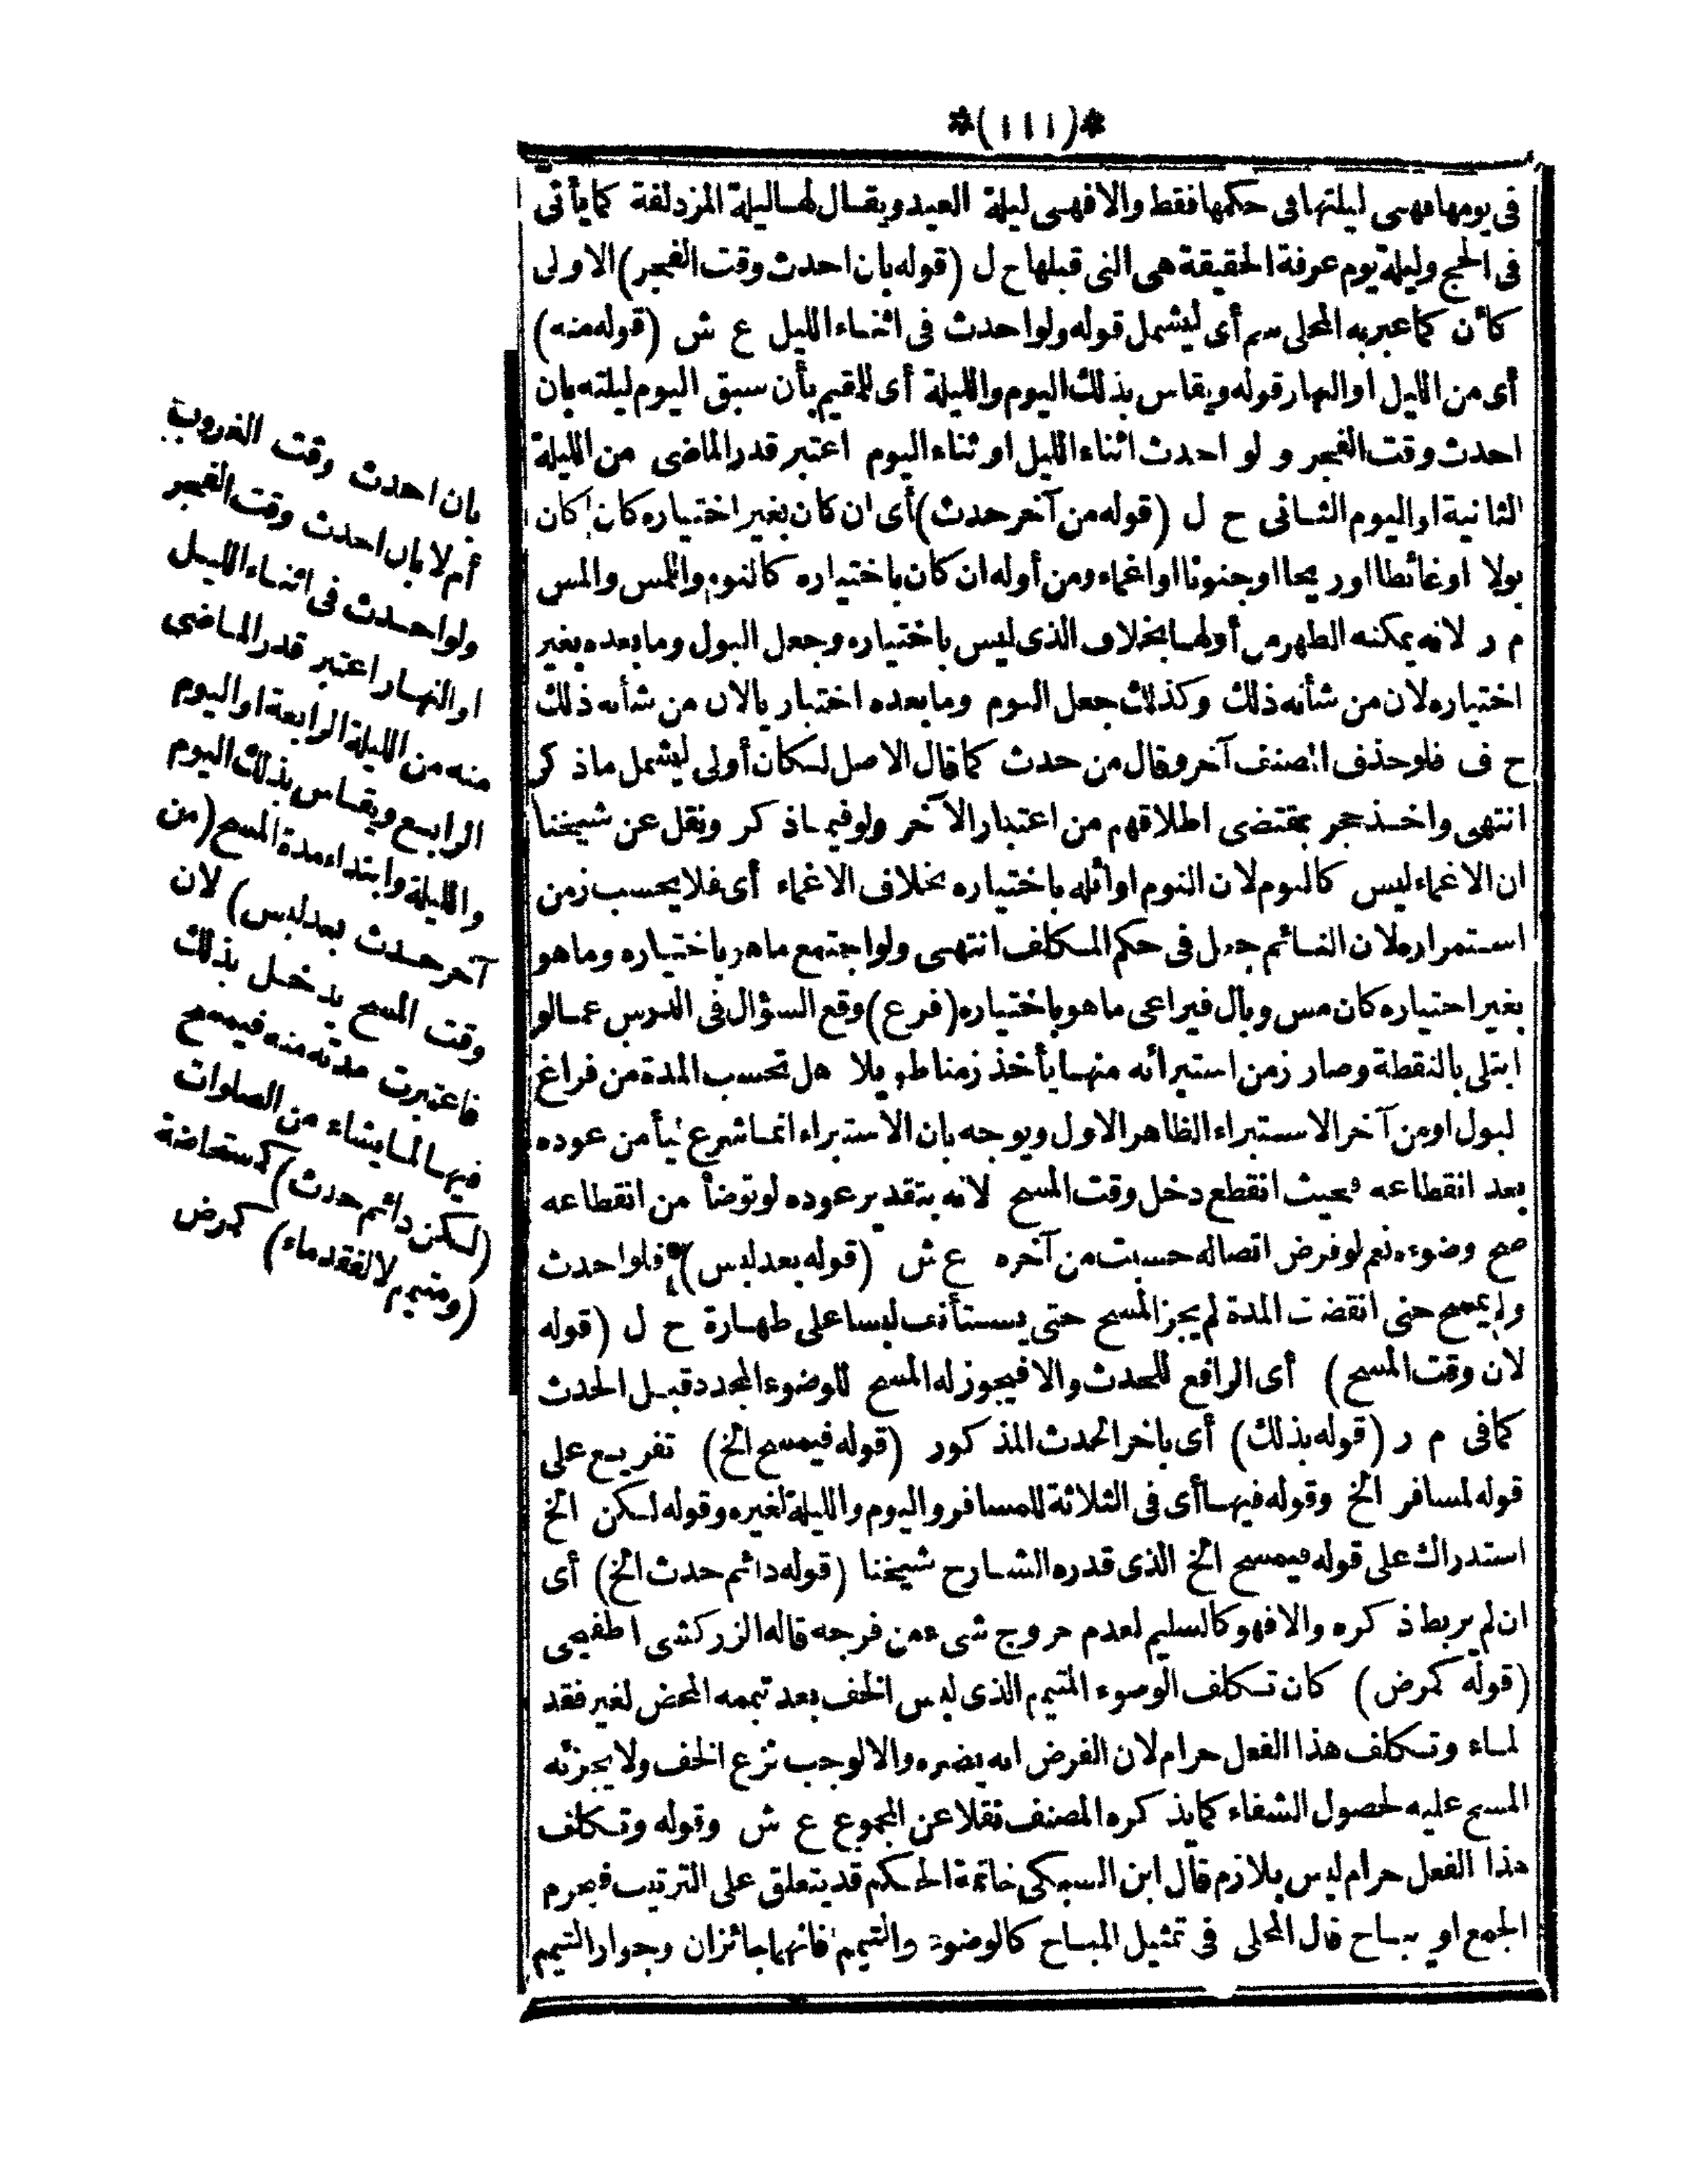 *(١١١)*
فى يومها فهى ليلتها فى حكمها فقط والا فهى ليلة العيد ويقال لها ليلة المزدلفة كما يأتى
فى الحج وليلة يوم عرفة الحقيقة هى التى قبلها ح ل (قوله بان احدث وقت الفجر) الاولى
كأن كما عبر به المحلى سم أى ليشمل قوله ولو احدث فى اثناء الليل ع ش (قوله منه)
أى من الليل او النهار قوله ويقاس بذلك اليوم والليلة أى للمقيم بأن سبق اليوم ليلته بان
احدث وقت الفجر و لو احدث اثناء الليل او ثناء اليوم اعتبر قدر الماضى من الليلة
الثانية او اليوم الثانى ح ل (قوله من آخر حدث) أى ان كان بغير اختياره كان كان
بولا او غائطا او ريحا او جنونا او اغماء ومن أوله ان كان باختياره كالنوم واللمس والمس
م ر لانه يمكنه الطهر من أولها بخلاف الذى ليس باختياره وجعل البول وما بعده بغير
اختياره لان من شأنه ذلك وكذلك جعل النوم وما بعده اختبار يا لان من شأنه ذلك
ح ف فلو حذف المصنف آخر وقال من حدث كما قال الاصل لكان أولى ليشمل ما ذكر
انتهى واخذ حجر بمقتضى اطلاقهم من اعتبار الآخر ولو فيما ذكر ونقل عن شيخنا
ان الاغماء ليس كالنوم لان النوم اوائله باختياره بخلاف الاغماء أى فلا يحسب زمن
استمراره لان النائم جعل فى حكم المكلف انتهى ولو اجتمع ما هو باختياره وما هو
بغير اختياره كان مس وبال فيراعى ما هو باختياره (فرع) وقع السؤال فى الدرس عما لو
ابتلى بالنقطة وصار زمن استبرائه منها يأخذ زمنا طويلا هل تحسب المدة من فراغ
لبول او من آخر الاستبراء الظاهر الاول ويوجه بان الاستبراء انما شرع ليأمن عوده
بعد انقطاعه فحيث انقطع دخل وقت المسح لانه بتقدير عوده لو توضأ من انقطاعه
صح وضوءه نعم لو فرض اتصاله حسبت من آخره ع ش (قوله بعد لبس) فلو احدث
ولم يمسح حتى انقضت المدة لم يجز المسح حتى يستأنف لبسا على طهارة ح ل (قوله
لان وقت المسح) أى الرافع للحدث والا فيجوز له المسح للوضوء المجدد قبل الحدث
كما فى م ر (قوله بذلك) أى باخر الحدث المذكور (قوله فيمسح الخ) تفريع على
قوله لمسافر الخ وقوله فيها أى فى الثلاثة للمسافر واليوم والليلة لغيره وقوله لكن الخ
استدراك على قوله فيمسح الخ الذى قدره الشارح شيخنا (قوله دائم حدث الخ) أى
ان لم يربط ذكره والا فهو كالسليم لعدم خروج شىء من فرجه قاله الزركشى اطفيحى
(قوله كمرض) كان تكلف الوضوء المتيمم الذى لبس الخف بعد تيممه المحض لغير فقد
لماء وتكلف هذا الفعل حرام لان الفرض انه يضره والا لوجب نزع الخف ولا يجزئه
المسح عليه لحصول الشفاء كما يذكره المصنف نقلا عن المجموع ع ش وقوله وتكلف
هذا الفعل حرام ليس بلازم قال ابن السبكى خاتمة الحكم قد يتعلق على الترتيب فيحرم
الجمع او يباح قال المحلى فى تمثيل المباح كالوضوء والتيمم فانهما جائزان وجواز التيمم
بان احدث وقت الغروب
أم لا بان احدث وقت الفجر
ولو احدث فى اثناء الليل
او النهار اعتبر قدر الماضى
منه من الليلة الرابعة او اليوم
الرابع ويقاس بذلك اليوم
والليلة وابتداء مدة المسح (من
آخر حدث بعد لبس) لان
وقت المسح يدخل بذلك
فاعتبرت مدته منه فيمسح
فيها لما يشاء من الصلوات
(لكن دائم حدث) كمستحاضة
(ومتيمم لا لفقد ماء) كمرض